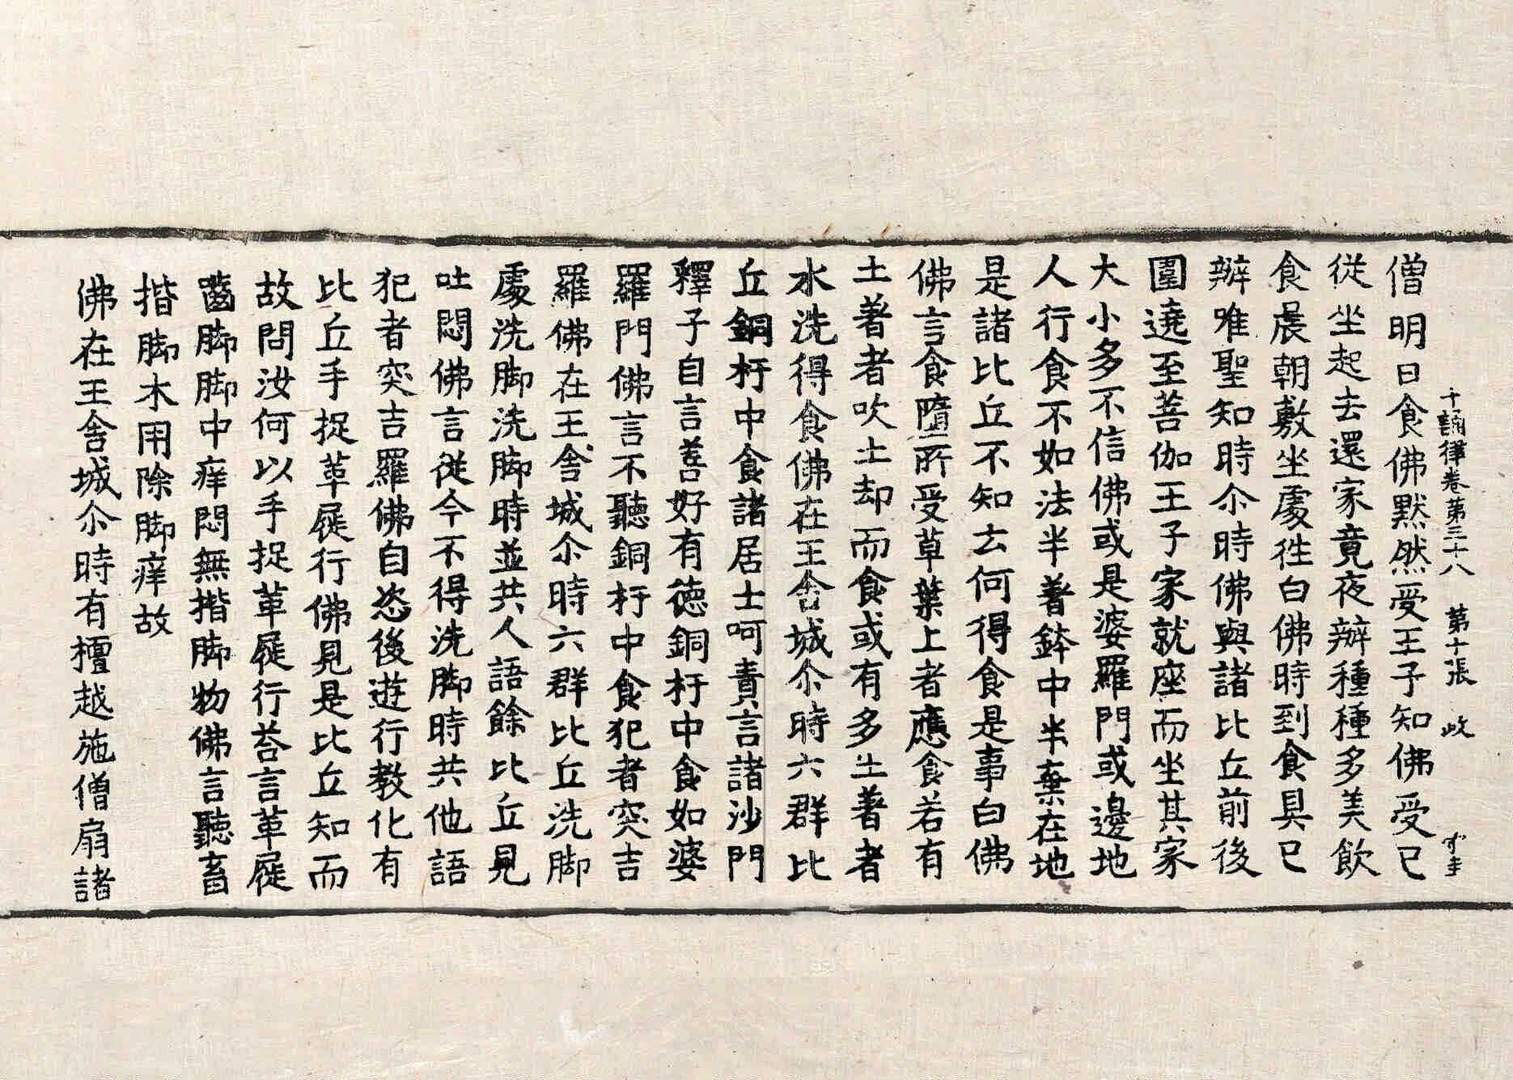 十誦律卷第三十八 第十張 政
僧明日食佛默然受王子知佛受已
從坐起去還家竟夜辦種種多美飲
食晨朝敷坐處徃白佛時到食具已
辦唯聖知時尒時佛與諸比丘前後
圍遶至菩伽王子家就座而坐其家
大小多不信佛或是婆羅門或邊地
人行食不如法半著鉢中半棄在地
是諸比丘不知云何得食是事白佛
佛言食墮所受草葉上者應食若有
土著者吹土却而食或有多土著者
水洗得食佛在王舍城尒時六群比
丘銅杅中食諸居士呵責言諸沙門
釋子自言善好有德銅杅中食如婆
羅門佛言不聽銅杅中食犯者突吉
羅佛在王舍城尒時六群比丘洗脚
處洗脚洗脚時並共人語餘比丘見
吐悶佛言從今不得洗脚時共他語
犯者突吉羅佛自恣後遊行教化有
比丘手捉革屣行佛見是比丘知而
故問汝何以手捉革屣行荅言革屣
齧脚脚中痒悶無揩脚物佛言聽畜
揩脚木用除脚痒故
佛在王舍城尒時有檀越施僧扇諸